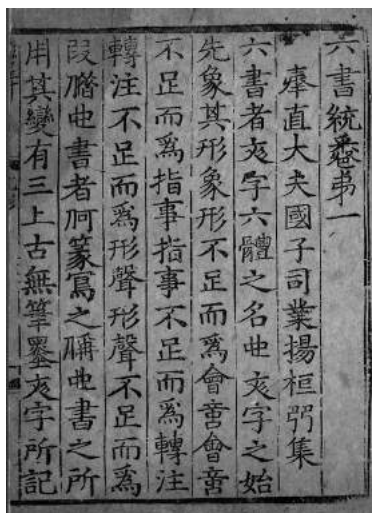 六書統卷弟一
奉直大夫國子司業揚桓集
六書者文字六體之名也文字之始
先象其形象形不足而爲會意會意
不足而爲指事指事不足而爲轉注
轉注不足而爲形聲形聲不足而爲
叚借也書者何篆寫之偁也書之所
用其變有三上古無筆墨文字所記